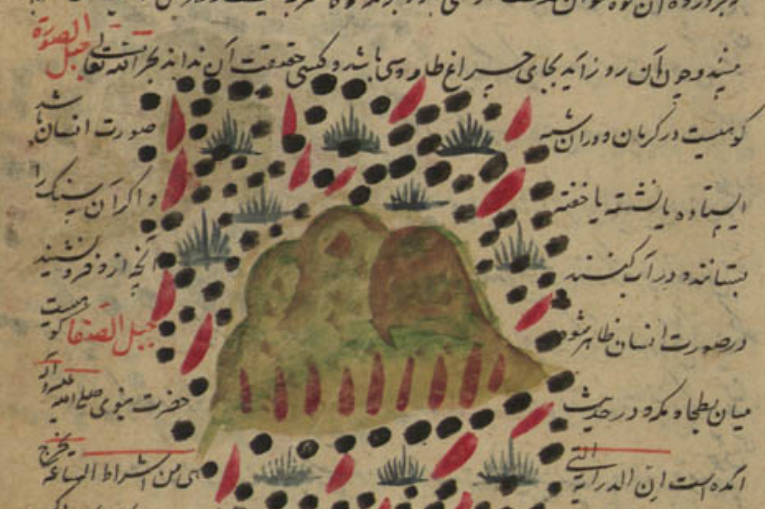 میبیند و چون آن روز آید بجای چراغ طاوسی باشد و کسی حقیقت آن نداند بجز الله تعالی جبل الصورة
کوهیست در کرمان و دران شبه صورت انسان باشد
ایستاده یا نشسته یا خفته و اگر آن سنک را
بستانند و در آب کنند آنچه ازو فرو نشیند
در صورت انسان ظاهر شود جبل الصفا کوهیست
میان بطحا و مکه و در حدیث حضرت نبوی صلی الله علیه و آله
آمده است ان التی هی من اشراط الساعة یخرج